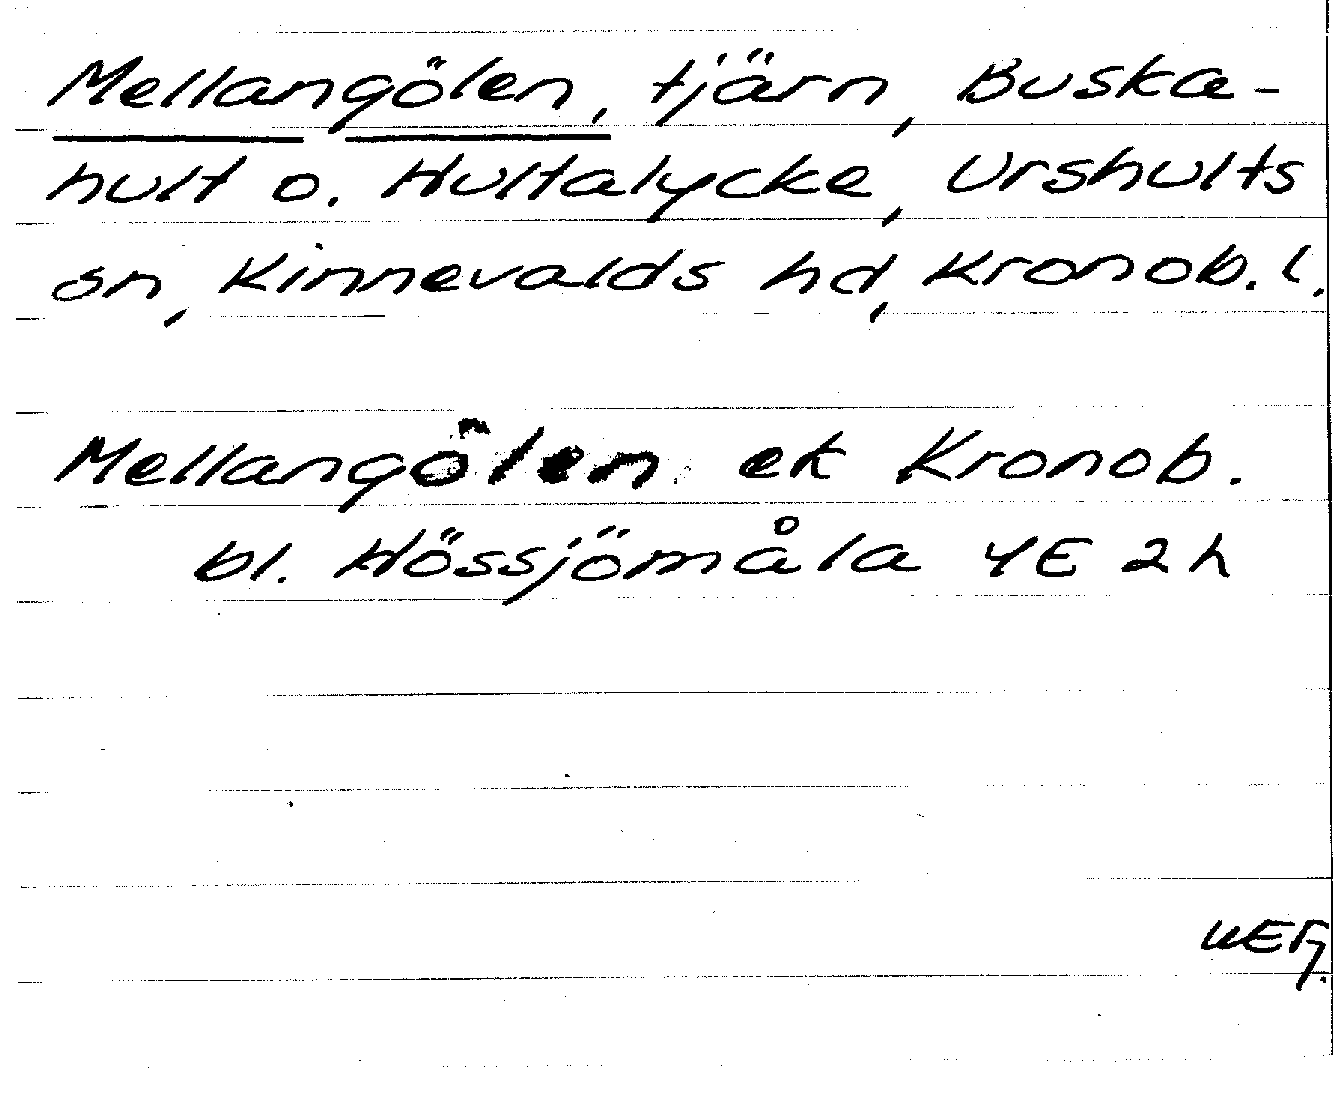 Mellangölen, tjärn, Buska-
hult o. Hultalycke, Urshults
sn, Kinnevalds hd, Kronob. l.
Mellangölen ek Kronob.
bl. Hössjömåla 4E 2h